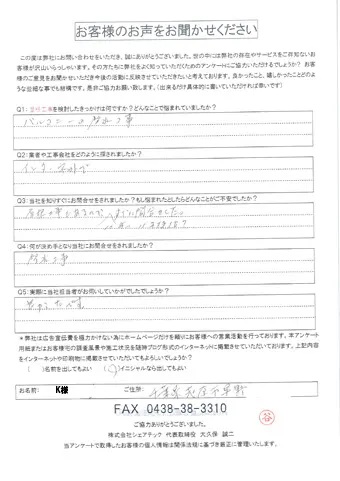 お客様のお声をお聞かせください
この度は弊社にお問い合わせをいただき、誠にありがとうございました。世の中には弊社の存在やサービスをご存知ないお
客様が沢山いらっしゃいます。その方たちに弊社をよく知っていただくためのアンケートにご協力いただけるでしょうか？ お
客様のご意見をお聞かせいただき今後の活動に反映させていただきたいと考えております。良かったこと、嬉しかったことどの
ような些細な事でも結構です。是非ご協力お願い致します。（出来るだけ具体的に書いていただければ幸いです）
Q1：を検討したきっかけは何ですか？どんなことで悩まれていましたか？
バルコニーの防水工事
Q2：業者や工事会社をどのように探されましたか？
インターネットで
Q3：当社を知りすぐにお問合せをされましたか？もし悩まれたとしたらどんなことがご不安でしたか？
Q4：何が決め手となり当社にお問合せをされましたか？
防水工事
Q5：実際に当社担当者がお伺いしていかがでしたでしょうか？
＊弊社は広告宣伝費を極力かけない為にホームページだけを頼りにお客様への営業活動を行っております。本アンケート
用紙またはお客様宅の調査風景や施工状況を随時ブログ形式のインターネットに掲載させていただいております。上記内容
をインターネットや印刷物に掲載させていただいてもよろしいでしょうか？
（ ）名前を出してもよい （ ）イニシャルなら出してもよい
お名前： K様 ご住所： 千葉県
FAX 0438-38-3310
ご協力ありがとうございました。
株式会社シェアテック 代表取締役 大久保 誠二
当アンケートで取得したお客様の個人情報は関係法規に基づき厳正に管理いたします。